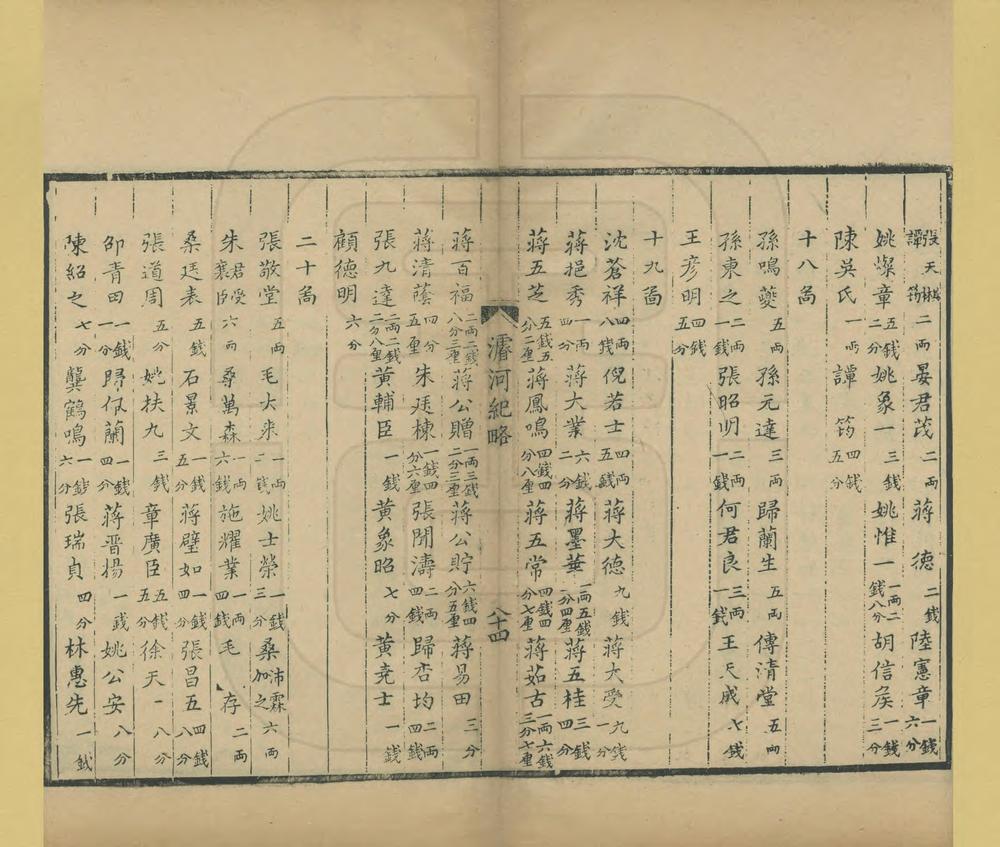 張天樾 譚筠 二兩 晏君茂 二兩 蔣德 二錢 陸憲章 一錢六分
姚燦章 五錢二分 姚象一 三錢 姚惟一 一兩二錢八分 胡信矦 一錢三分
陳吳氏 一兩 譚筠 四錢五分
十八啚
孫鳴夔 五兩 孫元達 三兩 歸蘭生 五兩 傅清堂 五兩
孫東之 二兩四錢 張昭明 二兩一錢 何君良 三兩一錢 王天成 七錢
王彥明 四錢五分
十九啚
沈蒼祥 四兩八錢 倪若士 四兩五錢 蔣大德 九錢 蔣大受 九錢一分
蔣挹秀 一兩四分 蔣大業 六錢二分 蔣墨華 一兩五錢二分四厘 蔣五桂 三錢四分
蔣五芝 五錢五分二厘 蔣鳳鳴 四錢四分八厘 蔣五常 四錢四分七厘 蔣茹古 一兩六錢三分七厘
濬河紀略 八十四
蔣百福 二兩二錢八分三厘 蔣公贈 一兩三錢二分二厘 蔣公貯 六錢四分五厘 蔣易田 三分
蔣清蔭 四分五厘 朱廷棟 一錢四分六厘 張開濤 二兩四錢 歸杏均 二兩四錢
張九達 二兩二錢二分八厘 黃輔臣 一錢 黃象昭 七分 黃堯士 一錢
顧德明 六分
二十啚
張敬堂 五兩 毛大來 一兩二錢 姚士榮 一錢三分 桑沛霖 加之 六兩
朱君受 襄臣 六兩 桑萬森 一兩六錢 施耀業 一兩四錢 毛存 二兩
桑廷表 五錢 石景文 一錢五分 蔣璧如 一錢四分 張昌五 四錢八分
張道周 五分 姚扶九 三錢 章廣臣 五錢五分 徐天一 八分
邵青田 一錢一分 歸佩蘭 一錢四分 蔣晋揚 一錢 姚公安 八分
陳紹之 七分 龔鶴鳴 一錢六分 張瑞貞 四分 林惠先 一錢